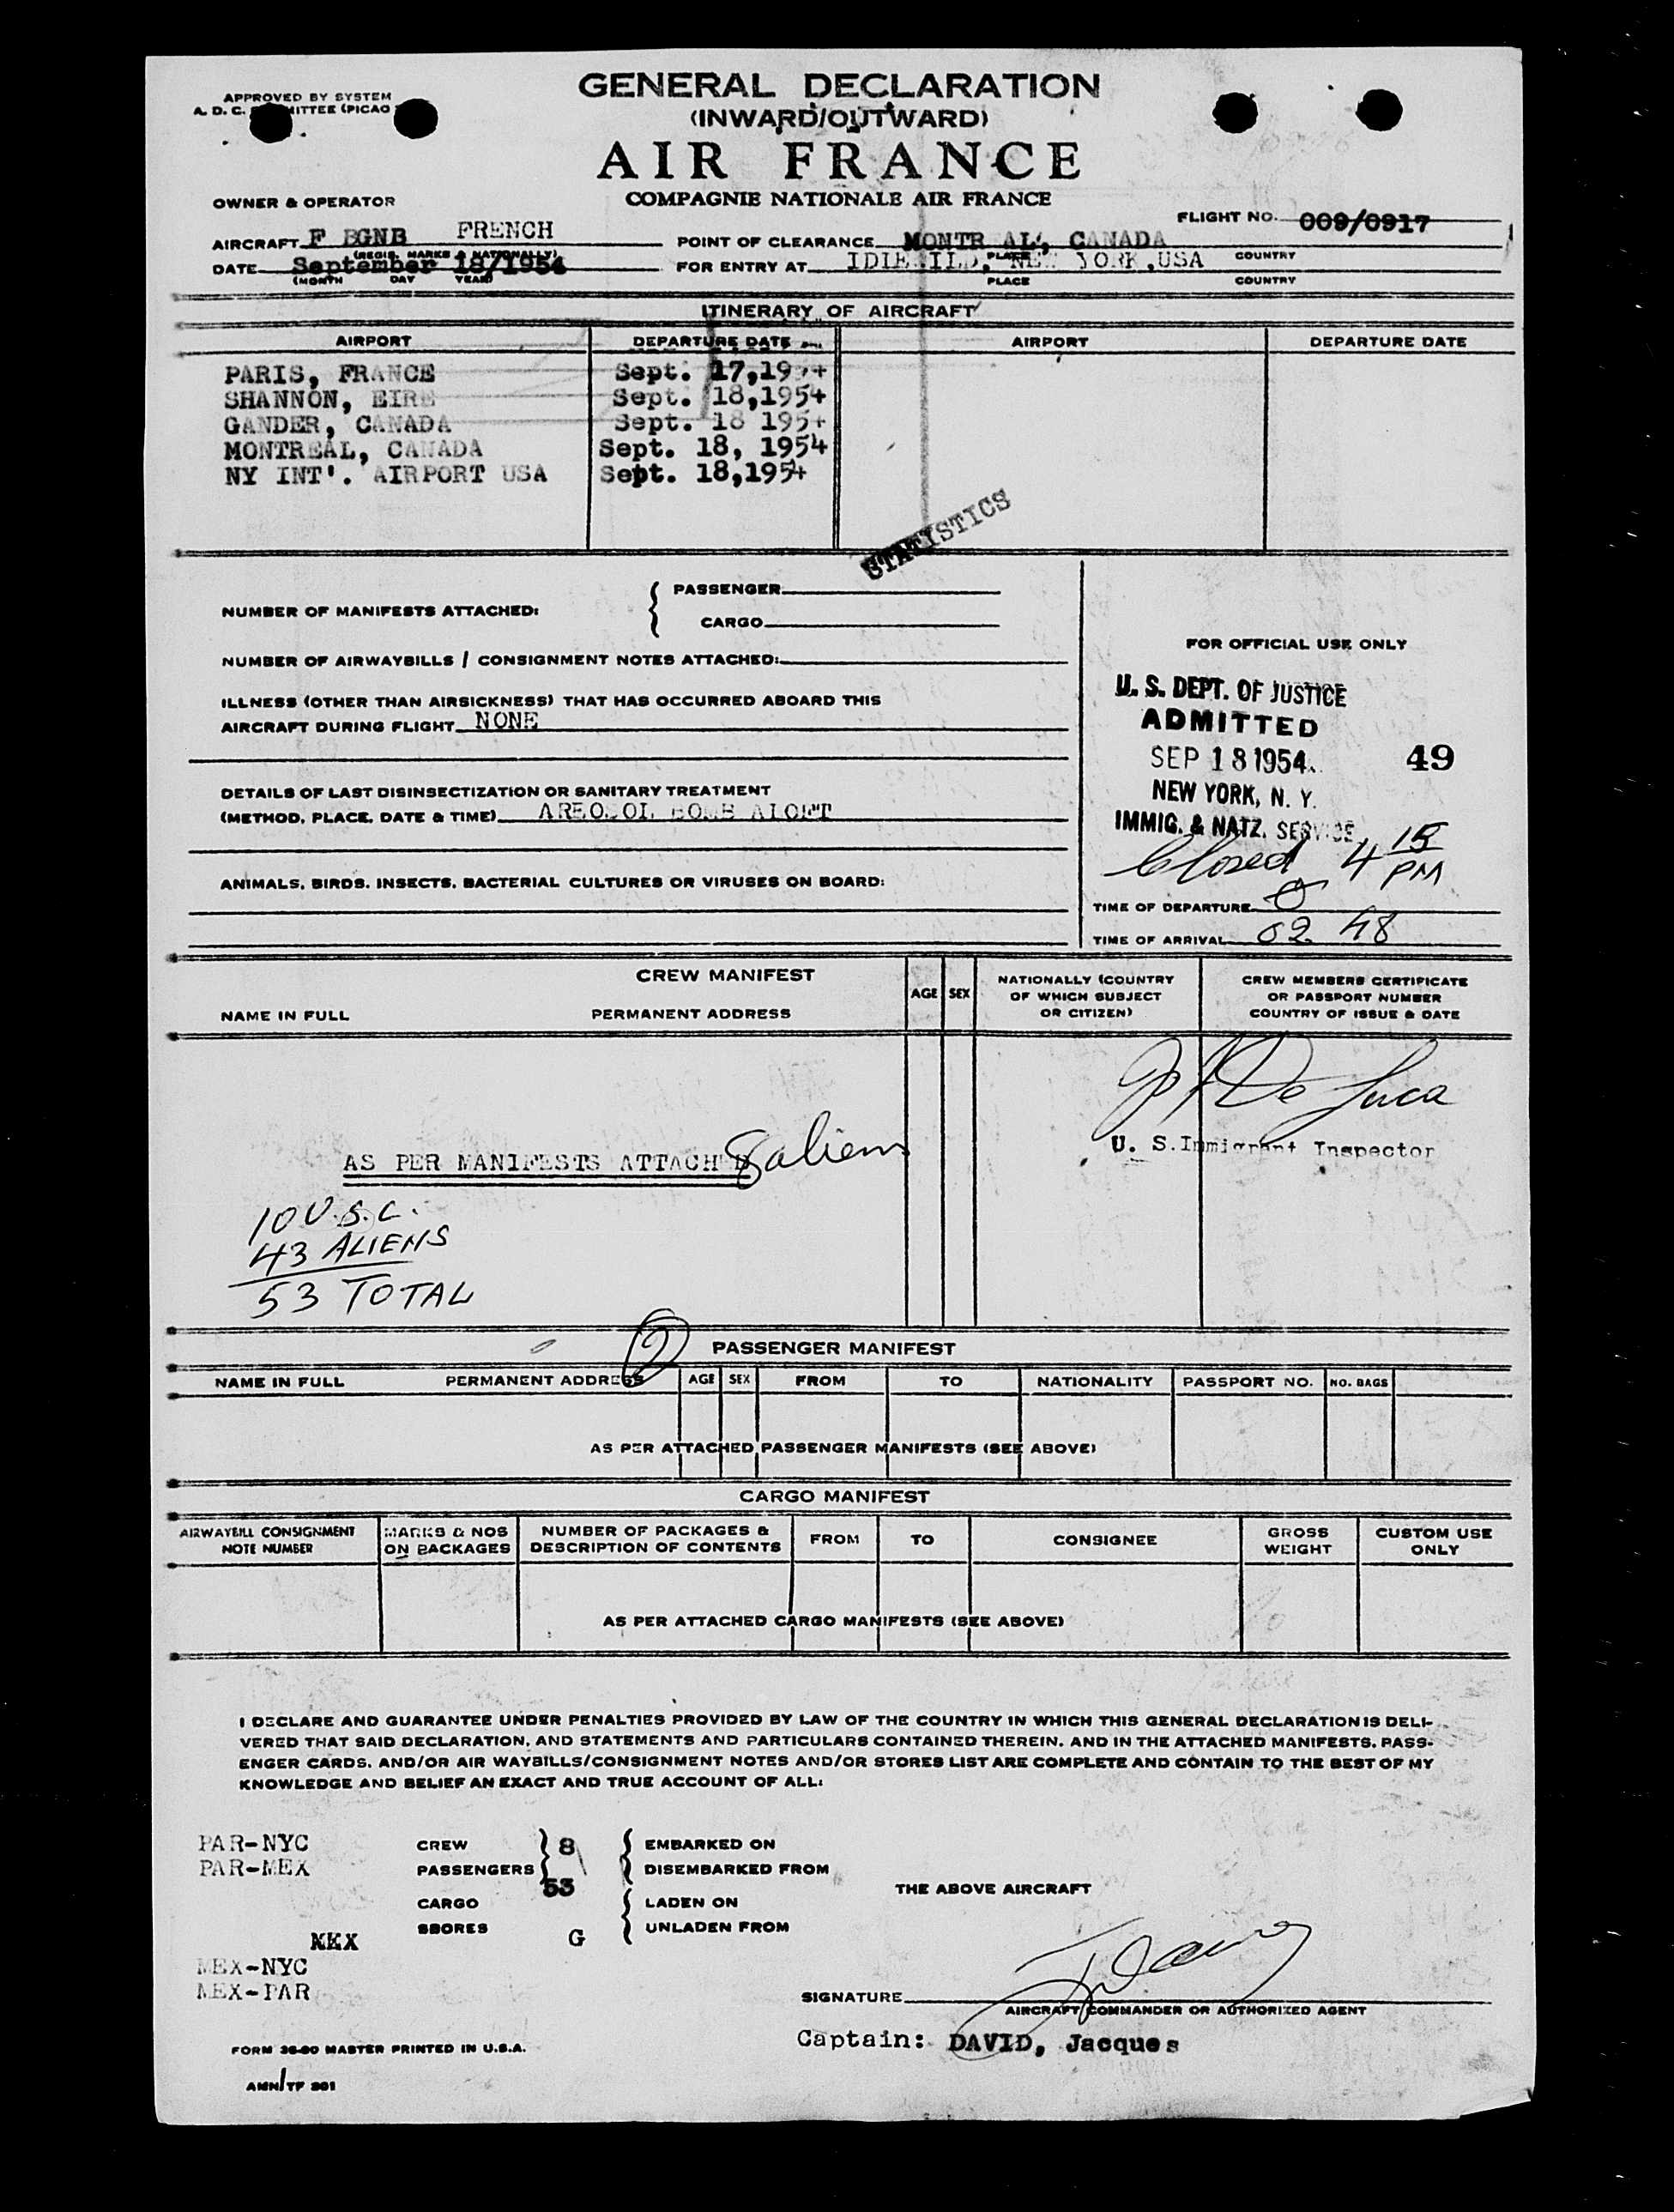 APPROVED BY SYSTEM
A. D. C. MITTEE (PICAO
GENERAL DECLARATION
(INWARD/OUTWARD)
AIR FRANCE
COMPAGNIE NATIONALE AIR FRANCE
OWNER & OPERATOR
FLIGHT NO. 009/0917
AIRCRAFT F BGNB FRENCH
(REGIS. MARKS & NATIONALLY)
POINT OF CLEARANCE MONTR AL, CANADA
PLACE COUNTRY
DATE September 18/1954
(MONTH DAY YEAR)
FOR ENTRY AT IDLEWILD, NEW YORK, USA
PLACE COUNTRY
ITINERARY OF AIRCRAFT
AIRPORT DEPARTURE DATE AIRPORT DEPARTURE DATE
PARIS, FRANCE Sept. 17,1954
SHANNON, EIRE Sept. 18,1954
GANDER, CANADA Sept. 18 1954
MONTREAL, CANADA Sept. 18, 1954
NY INT'. AIRPORT USA Sept. 18,1954
STATISTICS
NUMBER OF MANIFESTS ATTACHED:
PASSENGER
CARGO
NUMBER OF AIRWAYBILLS / CONSIGNMENT NOTES ATTACHED:
ILLNESS (OTHER THAN AIRSICKNESS) THAT HAS OCCURRED ABOARD THIS
AIRCRAFT DURING FLIGHT NONE
DETAILS OF LAST DISINSECTIZATION OR SANITARY TREATMENT
(METHOD, PLACE, DATE & TIME) AREOSOL BOMB ALOFT
ANIMALS, BIRDS, INSECTS, BACTERIAL CULTURES OR VIRUSES ON BOARD:
FOR OFFICIAL USE ONLY
U. S. DEPT. OF JUSTICE
ADMITTED
SEP 18 1954 49
NEW YORK, N. Y.
IMMIG. & NATZ. SERVICE
Closed 4 15 PM
TIME OF DEPARTURE
TIME OF ARRIVAL 02 48
CREW MANIFEST
NAME IN FULL PERMANENT ADDRESS AGE SEX
NATIONALLY (COUNTRY
OF WHICH SUBJECT
OR CITIZEN)
CREW MEMBERS CERTIFICATE
OR PASSPORT NUMBER
COUNTRY OF ISSUE & DATE
De Luca
U. S. Immigrant Inspector
AS PER MANIFESTS ATTACHED 8 aliens
10 U.S.C.
43 ALIENS
53 TOTAL
2
PASSENGER MANIFEST
NAME IN FULL PERMANENT ADDRESS AGE SEX FROM TO NATIONALITY PASSPORT NO. NO. BAGS
AS PER ATTACHED PASSENGER MANIFESTS (SEE ABOVE)
CARGO MANIFEST
AIRWAYBILL CONSIGNMENT
NOTE NUMBER
MARKS & NOS
ON PACKAGES
NUMBER OF PACKAGES &
DESCRIPTION OF CONTENTS
FROM TO CONSIGNEE
GROSS
WEIGHT
CUSTOM USE
ONLY
AS PER ATTACHED CARGO MANIFESTS (SEE ABOVE)
I DECLARE AND GUARANTEE UNDER PENALTIES PROVIDED BY LAW OF THE COUNTRY IN WHICH THIS GENERAL DECLARATION IS DELI-
VERED THAT SAID DECLARATION, AND STATEMENTS AND PARTICULARS CONTAINED THEREIN, AND IN THE ATTACHED MANIFESTS, PASS-
ENGER CARDS, AND/OR AIR WAYBILLS/CONSIGNMENT NOTES AND/OR STORES LIST ARE COMPLETE AND CONTAIN TO THE BEST OF MY
KNOWLEDGE AND BELIEF AN EXACT AND TRUE ACCOUNT OF ALL:
PAR-NYC CREW 8 EMBARKED ON
PAR-MEX PASSENGERS 53 DISEMBARKED FROM
THE ABOVE AIRCRAFT
CARGO LADEN ON
SBORES G UNLADEN FROM
MEX
MEX-NYC
MEX-PAR
SIGNATURE
AIRCRAFT COMMANDER OR AUTHORIZED AGENT
Captain: DAVID, Jacques
FORM 36-90 MASTER PRINTED IN U.S.A.
AMN/TF 301